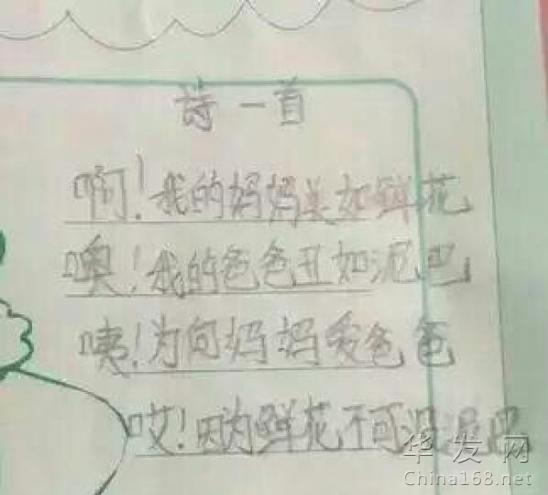 诗一首
啊!我的妈妈美如鲜花
噢!我的爸爸丑如泥巴
咦!为何妈妈爱爸爸
哎!因为鲜花不可没泥巴
华发网
China168.net